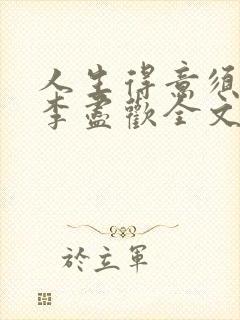 人生得意须
李盡歡全文
於立軍